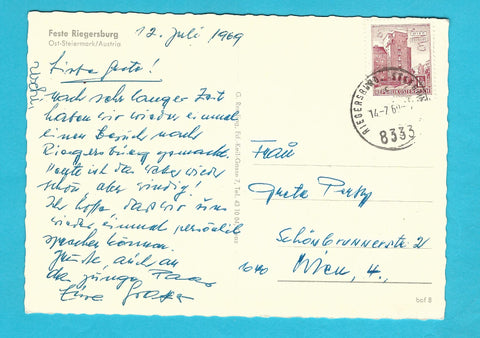 Feste Riegersburg
Ost-Steiermark/Austria
12. Juli 1969
Liebe Greta!
Nach sehr langer Zeit
haben wir wieder einmal
einen Besuch nach
Riegersburg gemacht.
Heute ist das Wetter wieder
schön, aber windig!
Ich hoffe, daß wir uns
wieder einmal persönlich
sprechen können.
Grüße auch an
das junge Paar
RIEGERSBURG
14-7.69
8333
REPUBLIK ÖSTERREICH
Frau
Greta
Schönbrunnerstr 2/
1040 Wien, 4.,
bof 8